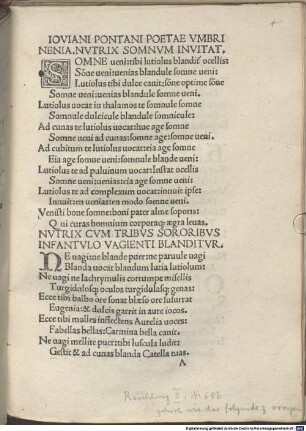 IOVIANI PONTANI POETAE VMBRI
NENIA. NVTRIX SOMNVM INVITAT.
SOMNE ueni: tibi lutiolus blandiſ ocellis:
Sõne ueni: uenias blandule somne ueni:
Lutiolus tibi dulce canit: sõne optime sõue
Somne ueni: uenias blandule somne ueni.
Lutiolus uocat in thalamos te somnule somne
Somnule dulcicule blandule somnicule:
Ad cunas te lutiolus uocat: huc age somne
Somne ueni ad cunas: somne age: somne ueni.
Ad cubitum te lutiolus uocat: eia age somne
Eia age somne ueni: somnule blande ueni:
Lutiolus te ad puluinum uocat: Instat ocellis
Somne ueni: uenias: eia age somne ueni:
Lutiolus te ad complexum uocat: innuit ipse:
Innuit: en uenias: en modo somne ueni.
Venisti bone somne: boni pater alme soporis:
Qui curas hominum corporaq; ægra leuas.
NVTRIX CVM TRIBVS SORORIBVS
INFANTVLO VAGIENTI BLANDITVR.
NE uagi: ne blande puer: ne paruule uagi
Blanda uocat blandum lutia lutiolum:
Ne uagi ne lachrymulis corrumpe misellis
Turgidulosq; oculos turgidulasq; genas:
Ecce tibi balbo ore sonat blæso ore susurrat
Eugenia: & dulcis garrit in aure iocos.
Ecce tibi molles inflectens Aurelia uoces:
Fabellas bellas: Carmina bella canit.
Ne uagi mellite puer: tibi luscula ludit:
Gestit & ad cunas blanda Catella tuas.
A